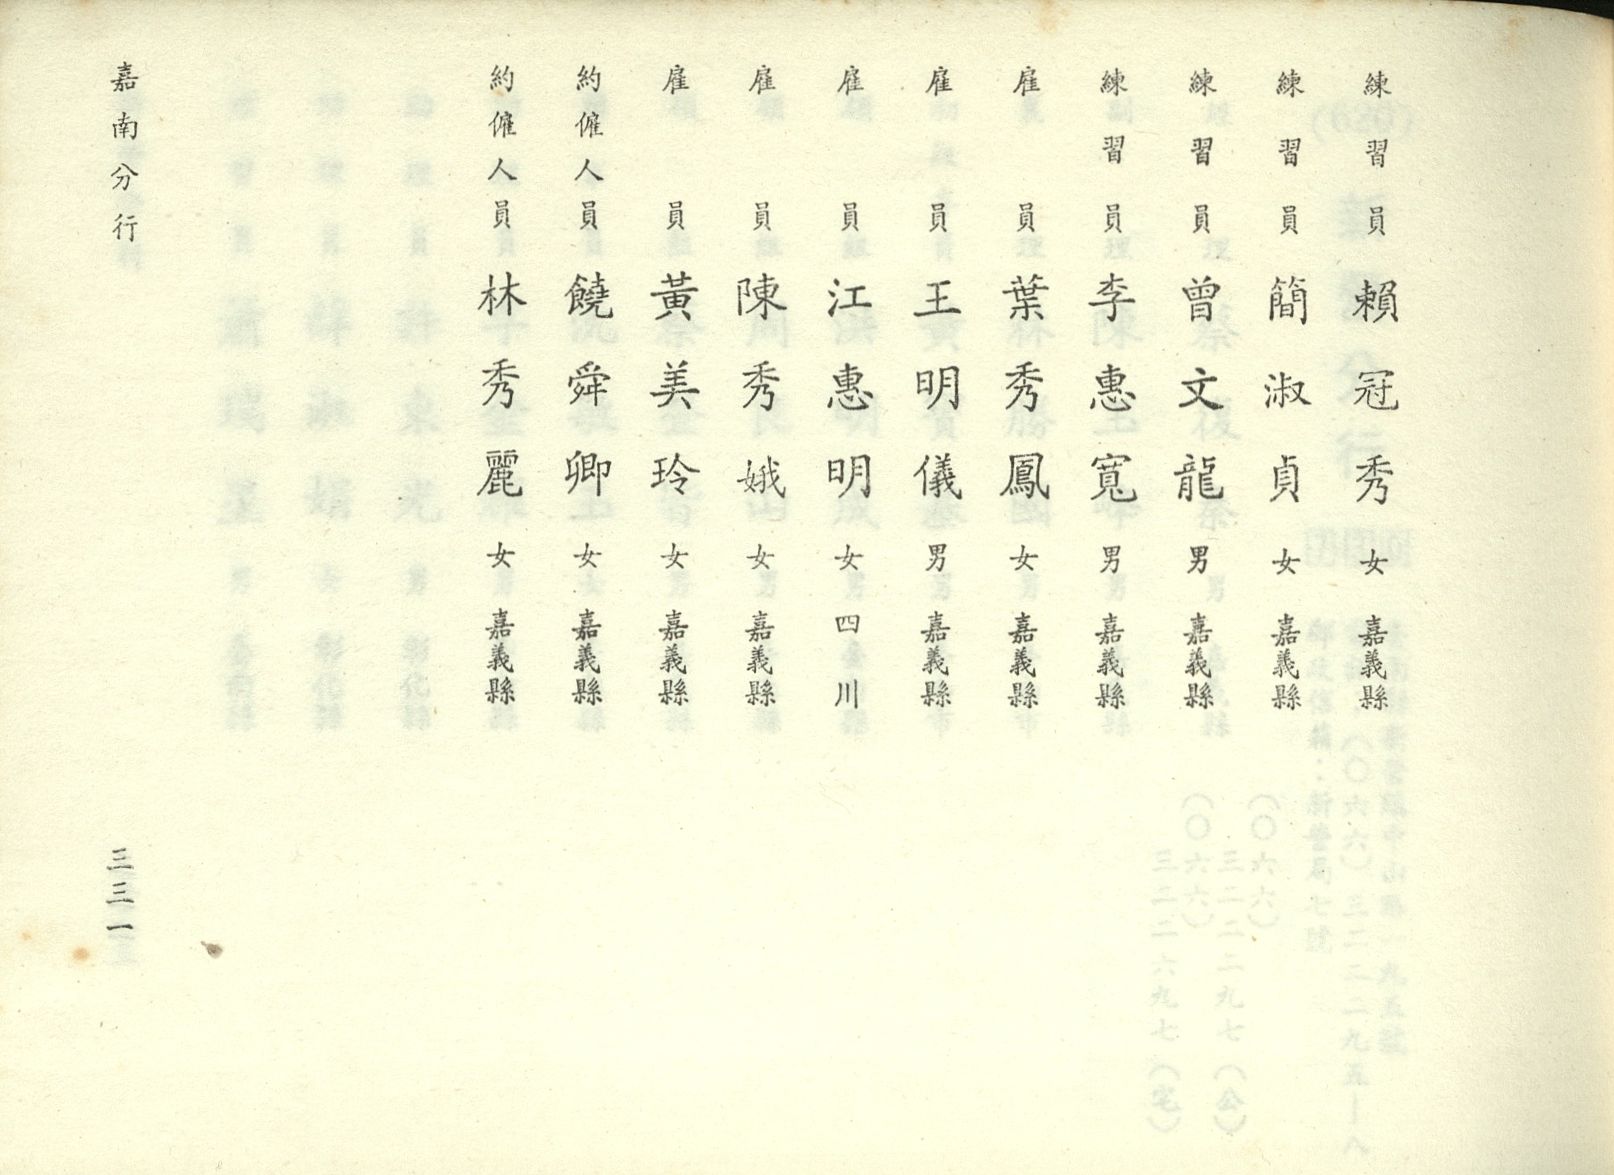 練習員 賴冠秀 女 嘉義縣
練習員 簡淑貞 女 嘉義縣
練習員 曾文龍 男 嘉義縣
練習員 李惠寬 男 嘉義縣
雇員 葉秀鳳 女 嘉義縣
雇員 王明儀 男 嘉義縣
雇員 江惠明 女 四川
雇員 陳秀娥 女 嘉義縣
雇員 黃美玲 女 嘉義縣
約僱人員 饒舜卿 女 嘉義縣
約僱人員 林秀麗 女 嘉義縣
嘉南分行
三三一